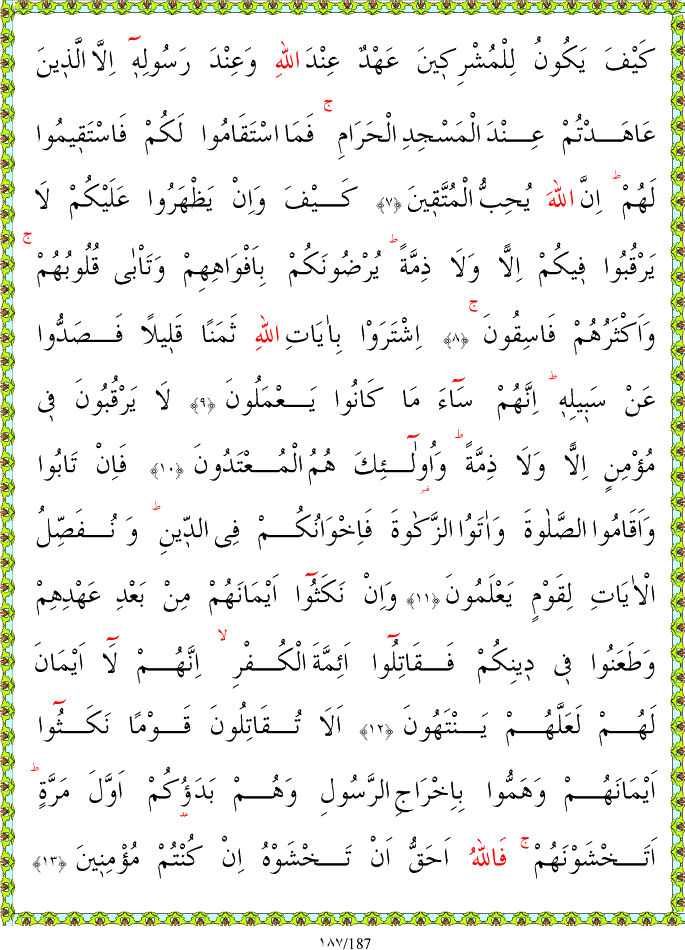 كَيْفَ يَكُونُ لِلْمُشْرِك۪ينَ عَهْدٌ عِنْدَ اللّٰهِ وَعِنْدَ رَسُولِه۪ٓ اِلَّا الَّذ۪ينَ
عَاهَدْتُمْ عِنْدَ الْمَسْجِدِ الْحَرَامِۚ فَمَا اسْتَقَامُوا لَكُمْ فَاسْتَق۪يمُوا
لَهُمْۜ اِنَّ اللّٰهَ يُحِبُّ الْمُتَّق۪ينَ ﴿٧﴾ كَيْفَ وَاِنْ يَظْهَرُوا عَلَيْكُمْ لَا
يَرْقُبُوا ف۪يكُمْ اِلًّا وَلَا ذِمَّةًۜ يُرْضُونَكُمْ بِاَفْوَاهِهِمْ وَتَأْبٰى قُلُوبُهُمْۚ
وَاَكْثَرُهُمْ فَاسِقُونَۚ ﴿٨﴾ اِشْتَرَوْا بِاٰيَاتِ اللّٰهِ ثَمَنًا قَل۪يلًا فَصَدُّوا
عَنْ سَب۪يلِه۪ۜ اِنَّهُمْ سَٓاءَ مَا كَانُوا يَعْمَلُونَ ﴿٩﴾ لَا يَرْقُبُونَ ف۪ى
مُؤْمِنٍ اِلًّا وَلَا ذِمَّةًۜ وَاُو۬لٰٓئِكَ هُمُ الْمُعْتَدُونَ ﴿١٠﴾ فَاِنْ تَابُوا
وَاَقَامُوا الصَّلٰوةَ وَاٰتَوُا الزَّكٰوةَ فَاِخْوَانُكُمْ فِى الدّ۪ينِۜ وَنُفَصِّلُ
الْاٰيَاتِ لِقَوْمٍ يَعْلَمُونَ ﴿١١﴾ وَاِنْ نَكَثُٓوا اَيْمَانَهُمْ مِنْ بَعْدِ عَهْدِهِمْ
وَطَعَنُوا ف۪ى د۪ينِكُمْ فَقَاتِلُٓوا اَئِمَّةَ الْكُفْرِۙ اِنَّهُمْ لَٓا اَيْمَانَ
لَهُمْ لَعَلَّهُمْ يَنْتَهُونَ ﴿١٢﴾ اَلَا تُقَاتِلُونَ قَوْمًا نَكَثُٓوا
اَيْمَانَهُمْ وَهَمُّوا بِاِخْرَاجِ الرَّسُولِ وَهُمْ بَدَؤُ۫كُمْ اَوَّلَ مَرَّةٍۜ
اَتَخْشَوْنَهُمْۚ فَاللّٰهُ اَحَقُّ اَنْ تَخْشَوْهُ اِنْ كُنْتُمْ مُؤْمِن۪ينَ ﴿١٣﴾
١٨٧/187